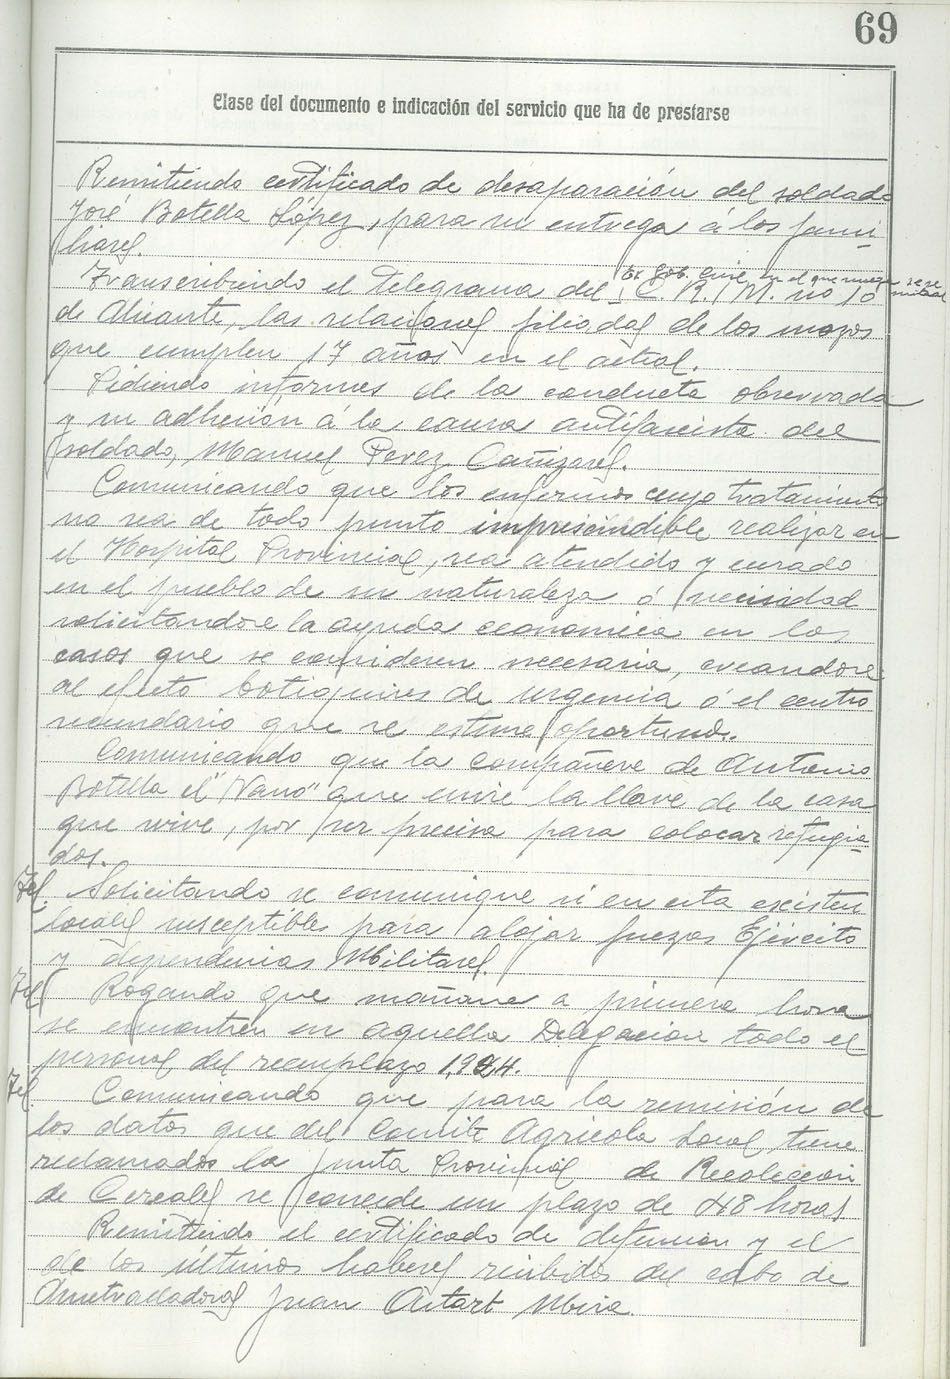 69
Clase del documento e indicación del servicio que ha de prestarse
Remitiendo certificado de desaparación del soldado
José Botella López, para su entrega á los fami-
liares.
Ex. Gob. Civil en el que ruega se re
Transcribiendo el Telegrama del C. R. I. M. no 10
de Alicante, las relaciones filiadas de los mozos
que cumplen 17 años en el actual.
Pidiendo informes de la conducta observada
y su adhesión á la causa antifascista del
soldado, Manuel Perez Cañizares.
Comunicando que los enfermos cuyo tratamiento
no sea de todo punto imprescindible realizar en
el Hospital Provincial, sea atendido y curado
en el pueblo de su naturaleza ó vecindad
solicitandose la ayuda economica en los
casos que se consideren necesaria, creandose
al efecto botiquines de urgencia ó el centro
secundario que se estime oportuno.
Comunicando que la compañera de Antonio
Botella el "Nano" que envie la llave de la casa
que vive, por ser precisa para colocar refugia-
dos.
Tel. Solicitando se comunique si en esta existen
locales susceptibles para alojar fuezas Ejército
y dependencias Militares.
Tel Rogando que mañana a primera hora
se encuentren en aquella Delegacion todo el
personal del reemplazo 1,924.
Tel. Comunicando que para la remisión de
los datos que del Comite Agricola Local, tiene
reclamados la Junta Provincial de Recoleccion
de Cereales se concede un plazo de 48 horas
Remitiendo el certificado de defuncion y el
de los últimos haberes recibidos del cabo de
Ametralladoras Juan Mira.